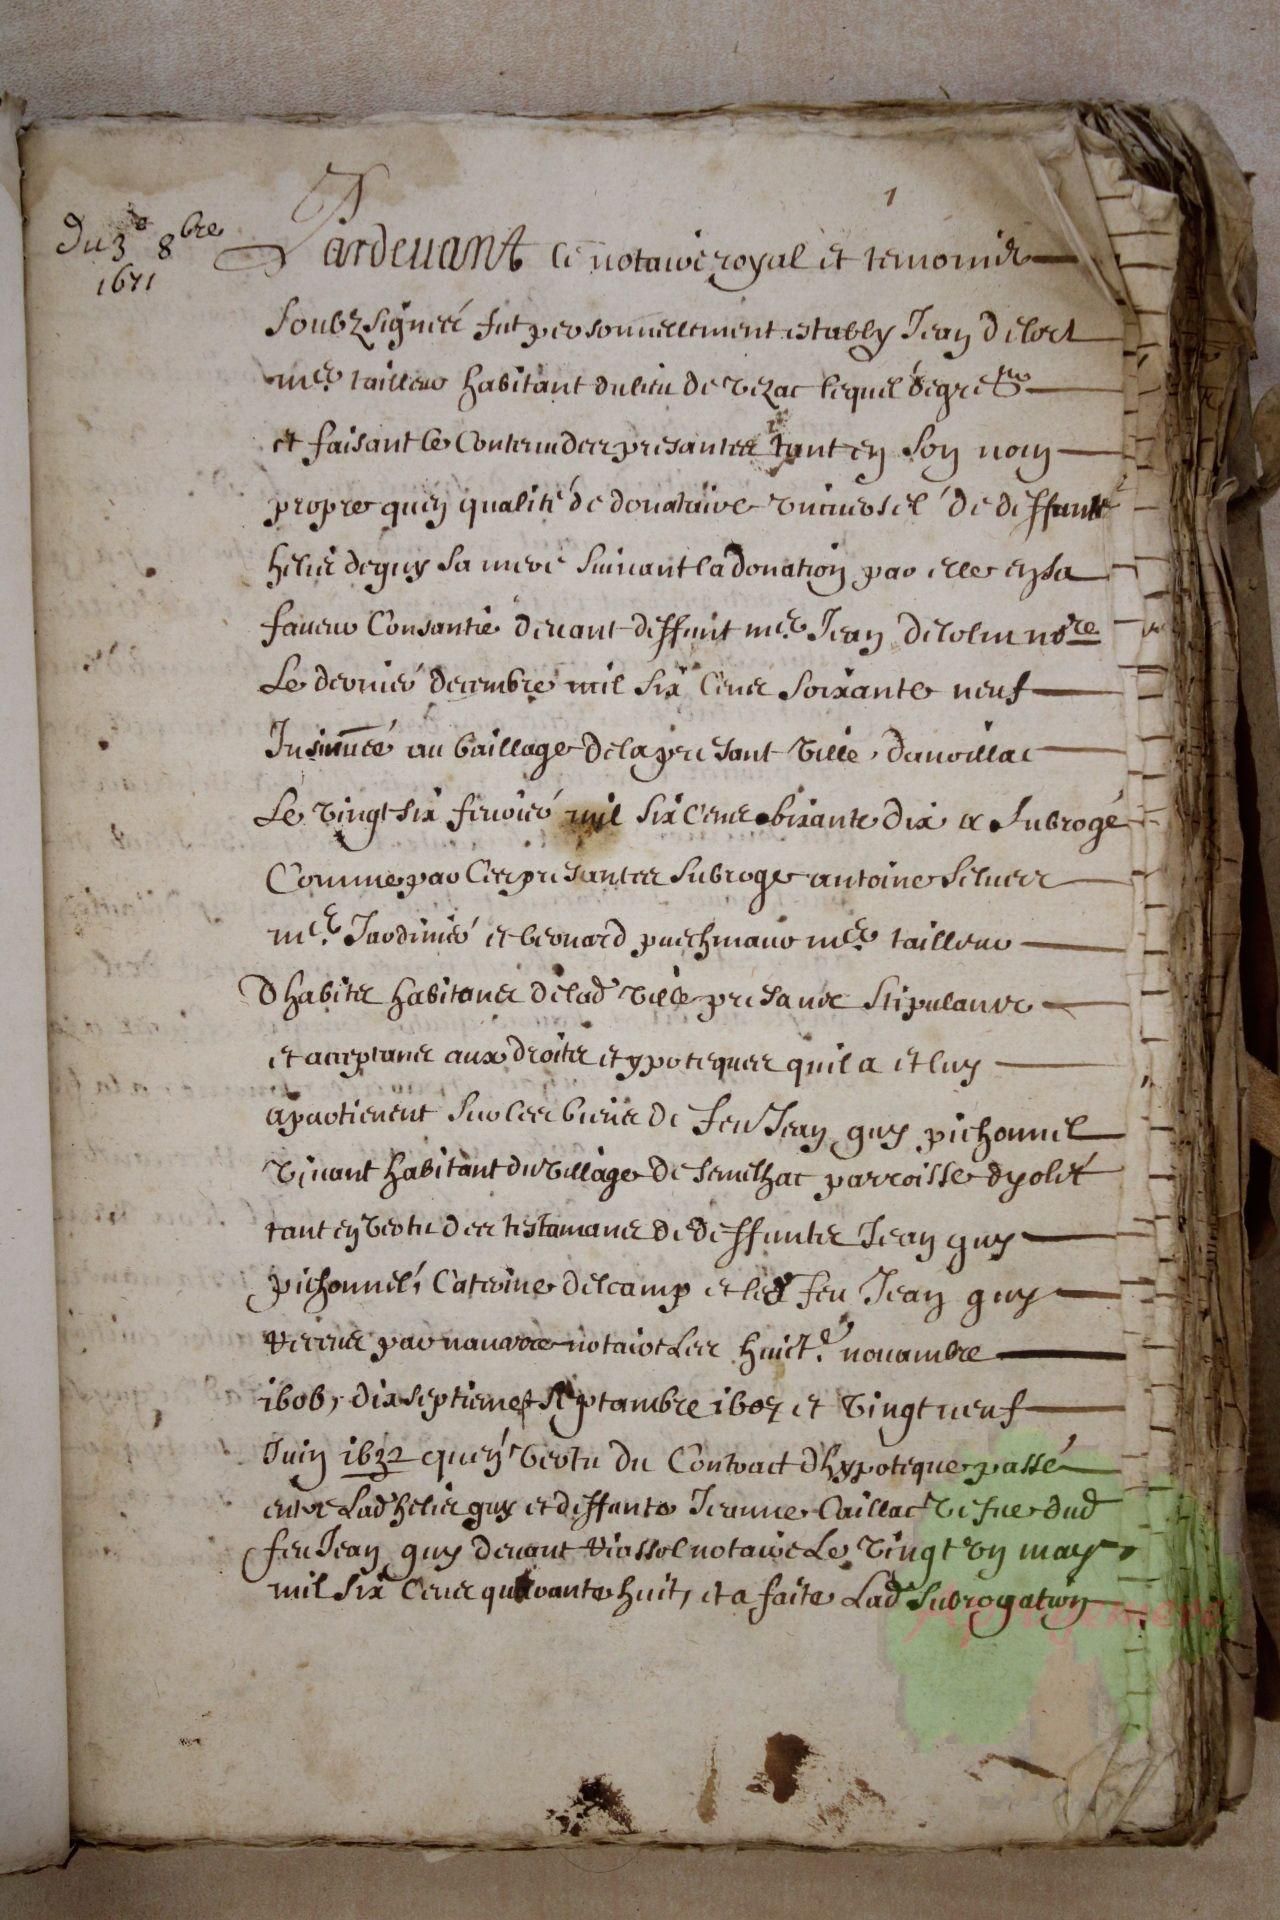 1
Du 3e 8bre
1671
Pardevant le notaire royal et temoins
soubzsignés fut personnellement estably Jean Delort
me tailleur habitant du lieu de Vezac lequel de gré
et faisant le contenu des presantes tant en son nom
propre qu'en qualité de donataire universel de deffunte
helis de guy sa mere suivant la donation par elle en sa
faveur consantie devant deffunt me Jean Delolm nore
le dernier decembre mil six cens soixante neuf
Insinuée au baillage de la presant ville d'auoillac
le vingt six fevrier mil six cens soixante dix a subrogé
comme par ces presantes subroge antoine
me Jardinier et leonard puechmaur me tailleur
d'habits habitans de lad ville presans stipulans
et acceptans aux droits et ypoteques qu'il a et luy
apartienent sur les biens de feu Jean guy pichonnel
vivant habitant du village de Semilhac parroisse
tant en vertu des testamans de deffunts Jean guy
pichonnel, Caterine delcamp et led feu Jean guy
receus par notaire les huict novambre
1606, dix septieme septambre 1607 et vingt neuf
Juin 1632 qu'en vertu du contract d'hypoteque passé
entre lad helis guy et deffunte Jeanne Caillac vefue dud
feu Jean guy devant notaire le vingt un may
mil six cens quarante huit, et a faite lad subrogation